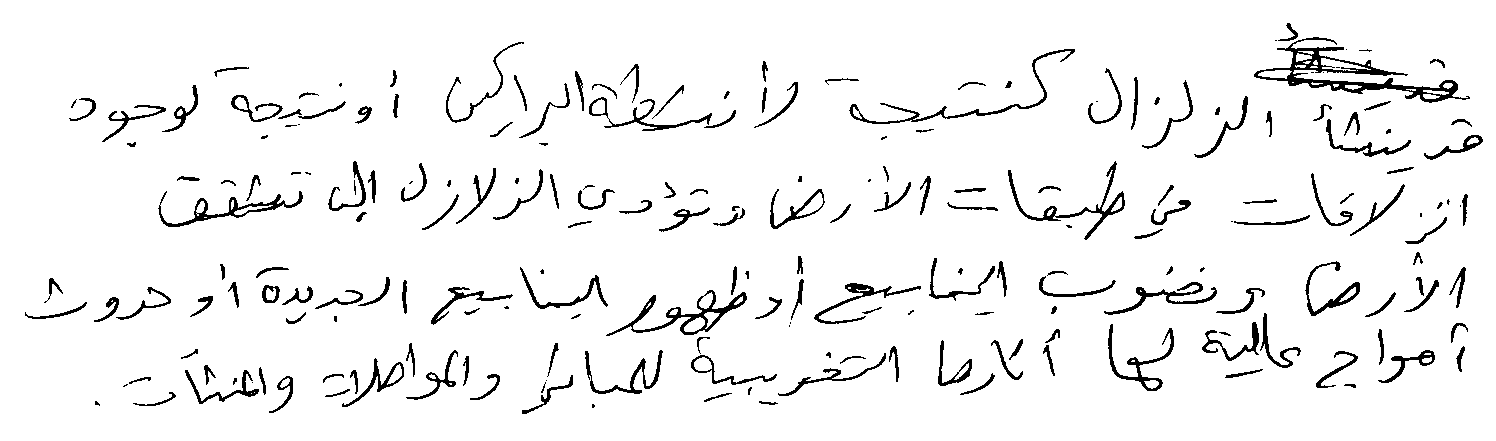 قد ينشأ الزلزال كنتيجة لأنشطة البراكين أو نتيجة لوجود
انزلاقات في طبقات الأرض وتؤدي الزلازل إلى تشقق
الأرض ونضوب الينابيع أو ظهور الينابيع الجديدة أو حدوث
أمواج عالية لها آثارها التخريبية للمباني والمواصلات والمنشآت.